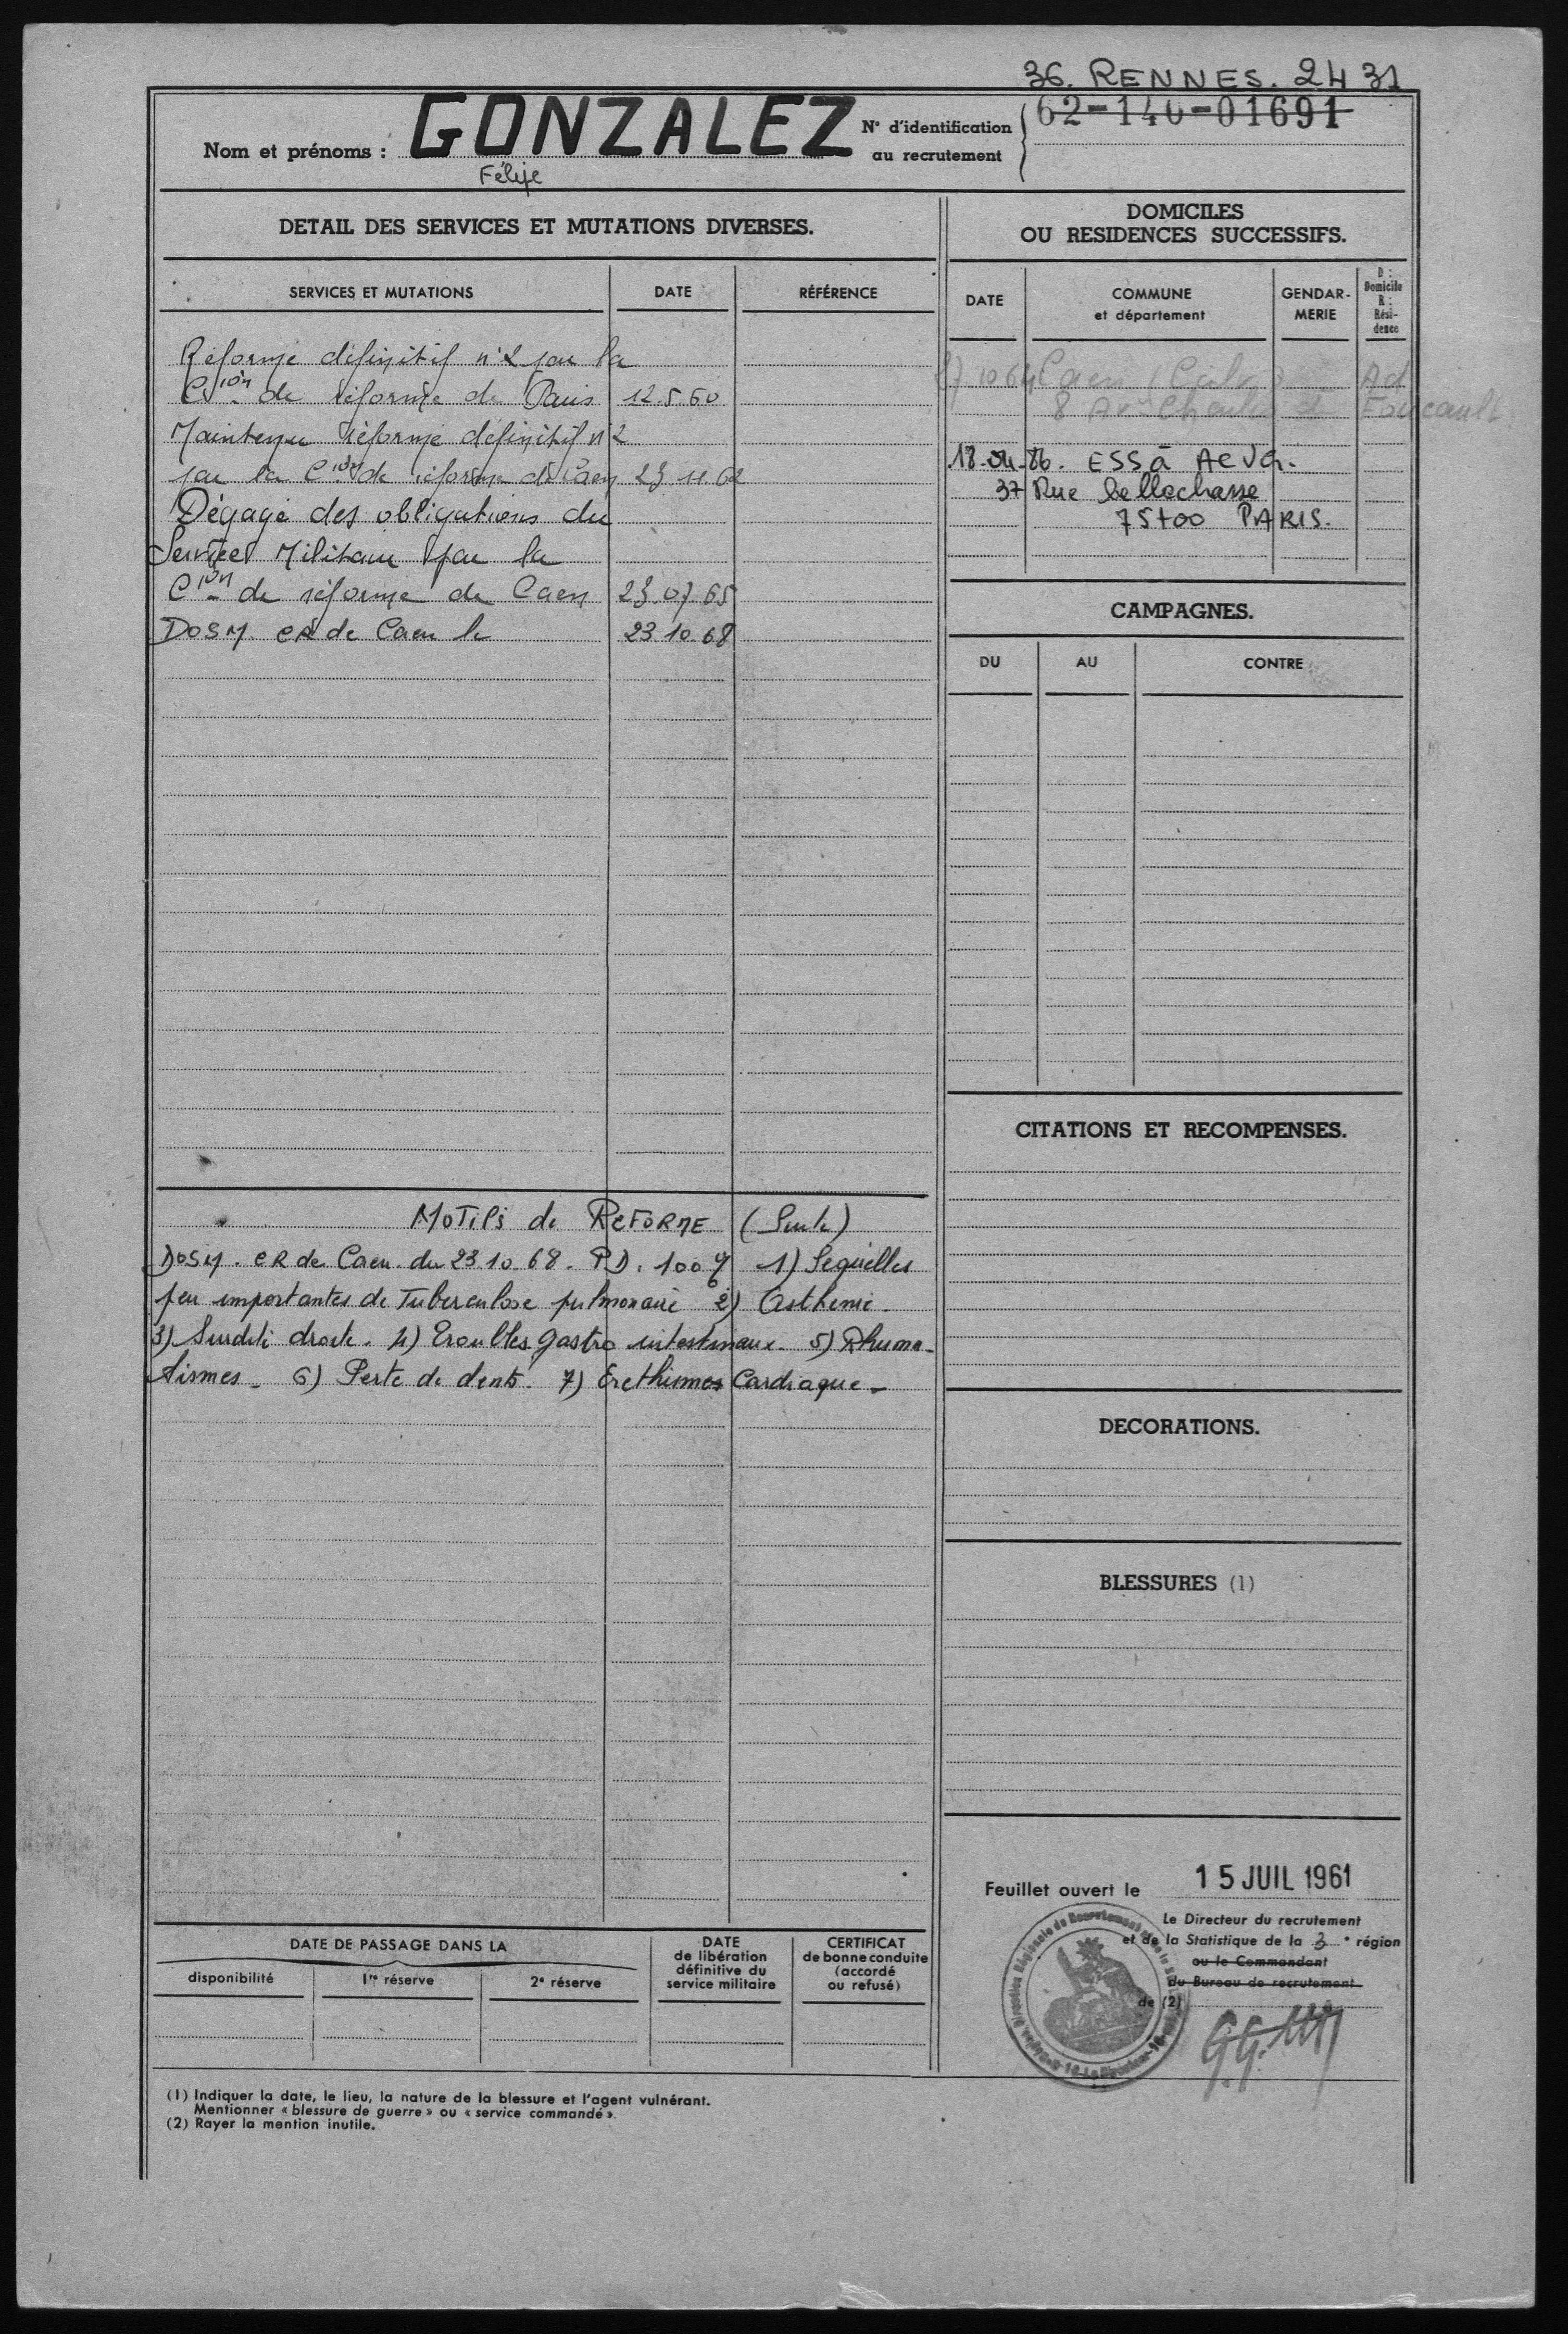 36. RENNES. 2431
62-140-01691
Nom et prénoms : GONZALEZ
Félipe
N° d'identification
au recrutement
DETAIL DES SERVICES ET MUTATIONS DIVERSES.
SERVICES ET MUTATIONS DATE RÉFÉRENCE
Réformé définitif n°2 par la
Cion de réforme de Paris 12.5.60
Maintenu réformé définitif n°2
par la Cion de réforme de Caen 23 11 62
Dégagé des obligations du
Service Militaire par la
Cion de réforme de Caen 23.07.65
DOSM CR de Caen le 23 10 68
MOTIFS de REFORME (Suite)
DOSM. CR de Caen du 23 10 68. P.D. 100% 1) Sequelles
peu importantes de Tuberculose pulmonaire 2) Asthenie.
3) Surdité droite. 4) Troubles gastro intestinaux. 5) Rhuma-
tismes. 6) Perte de dents. 7) Erethismes Cardiaque.
DATE DE PASSAGE DANS LA
disponibilité 1re réserve 2e réserve
DATE
de libération
définitive du
service militaire
CERTIFICAT
de bonne conduite
(accordé
ou refusé)
(1) Indiquer la date, le lieu, la nature de la blessure et l'agent vulnérant.
Mentionner « blessure de guerre » ou « service commandé ».
(2) Rayer la mention inutile.
DOMICILES
OU RESIDENCES SUCCESSIFS.
DATE
COMMUNE
et département
GENDAR-
MERIE
D :
Domicile
R :
Rési-
dence
10 64 Caen Ad
8 Charles de Foucault
18-04-86. ESS à ACVG.
37 Rue bellechasse
75700 PARIS.
CAMPAGNES.
DU AU CONTRE
CITATIONS ET RECOMPENSES.
DECORATIONS.
BLESSURES (1)
Feuillet ouvert le 15 JUIL 1961
Le Directeur du recrutement
et de la Statistique de la 3e région
ou le Commandant
du Bureau de recrutement
de (2)